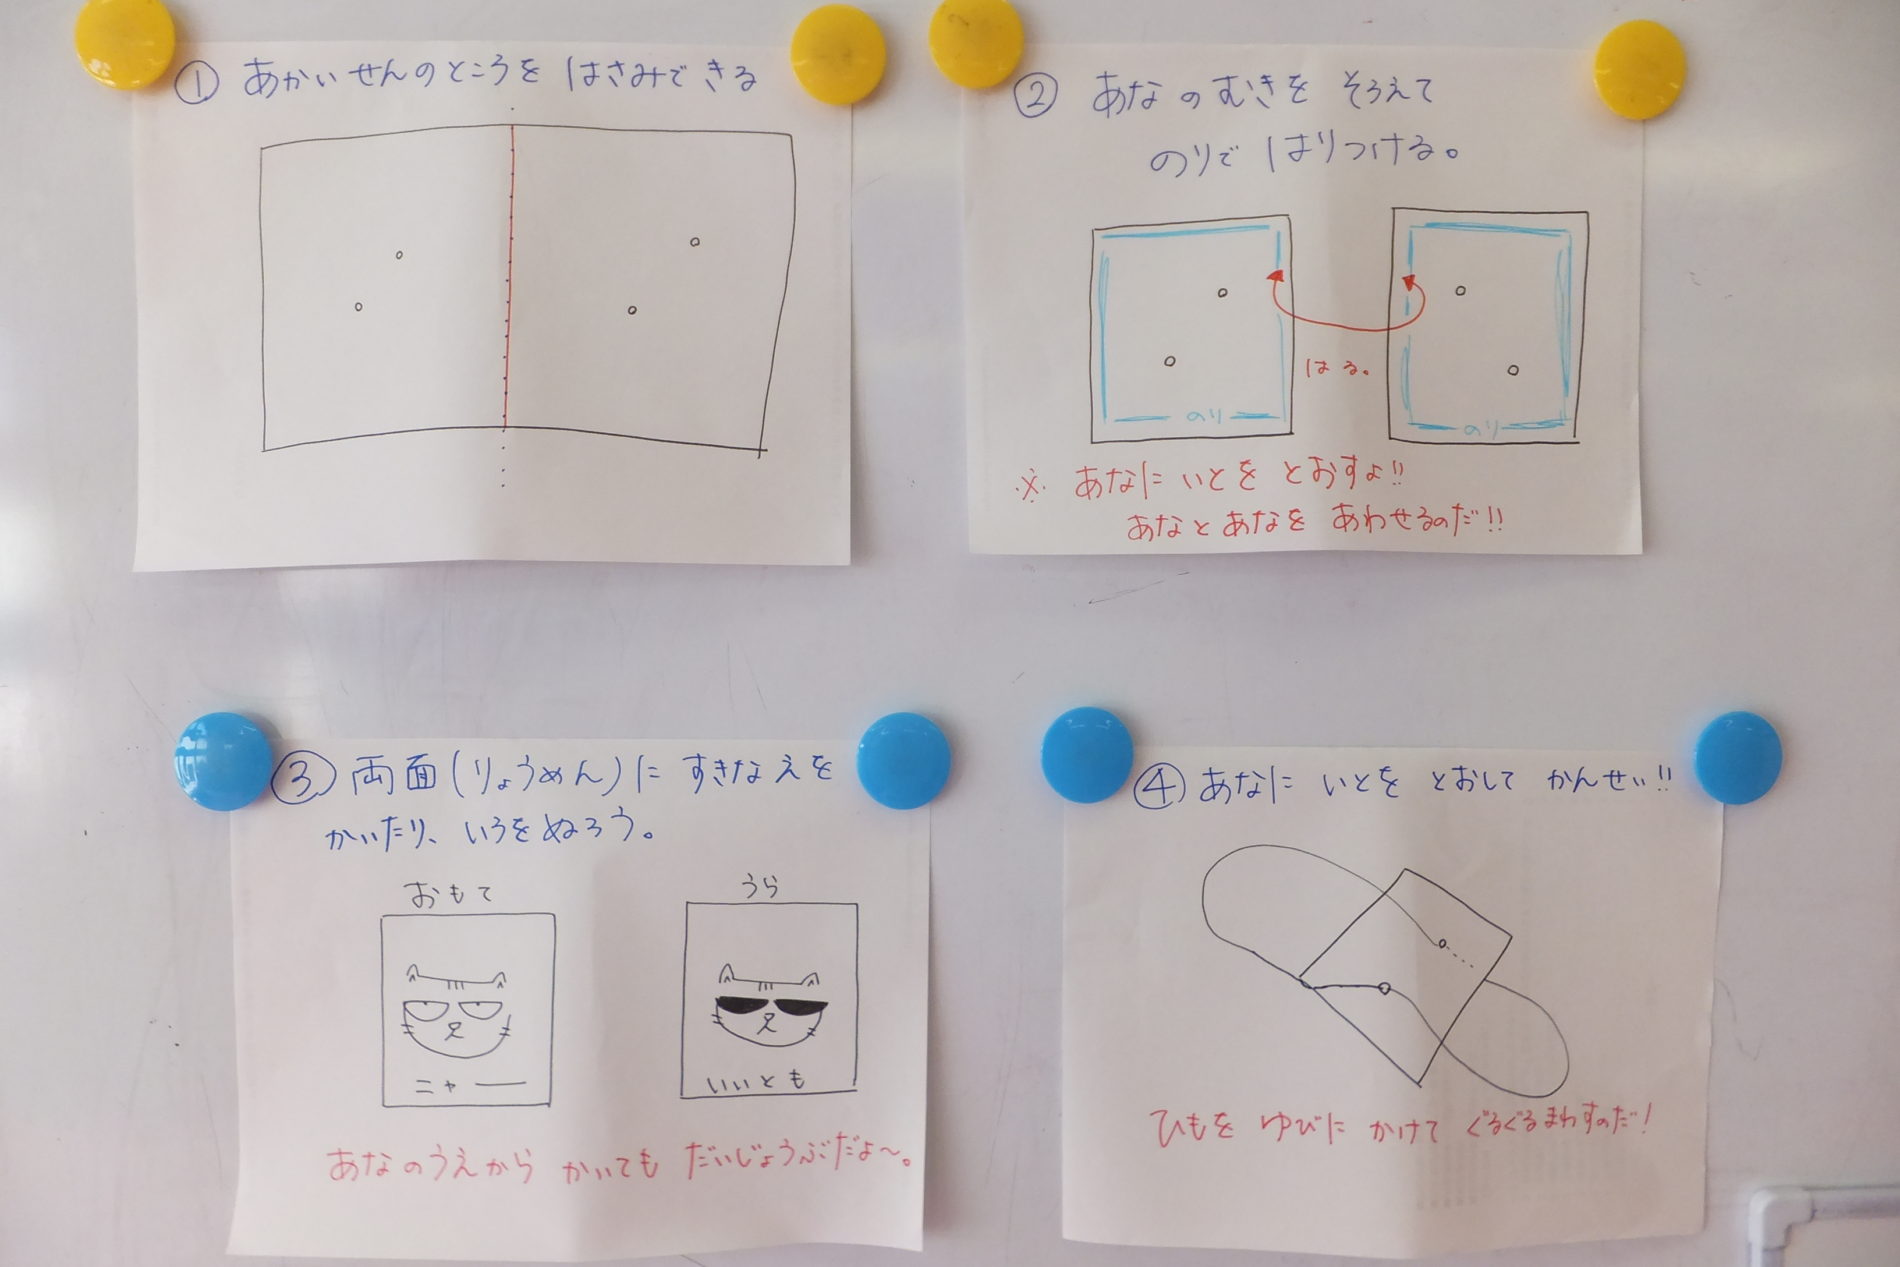 ① あかいせんのところを はさみできる
② あなのむきを そろえて
のりで はりつける。
はる。
のり
のり
※ あなに いとを とおすよ!!
あなとあなを あわせるのだ!!
③ 両面(りょうめん)に すきなえを
かいたり、いろをぬろう。
おもて
うら
ニャー
いいとも
あなのうえから かいても だいじょうぶだよ〜。
④ あなに いとを とおして かんせい!!
ひもを ゆびに かけて ぐるぐるまわすのだ!